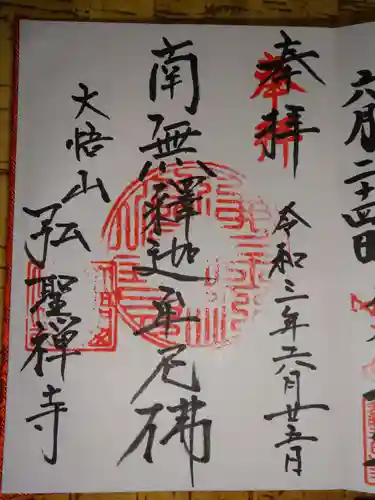 六月二十四日
奉拝
令和三年六月廿五日
南無釋迦牟尼佛
大悟山
弘聖禅寺